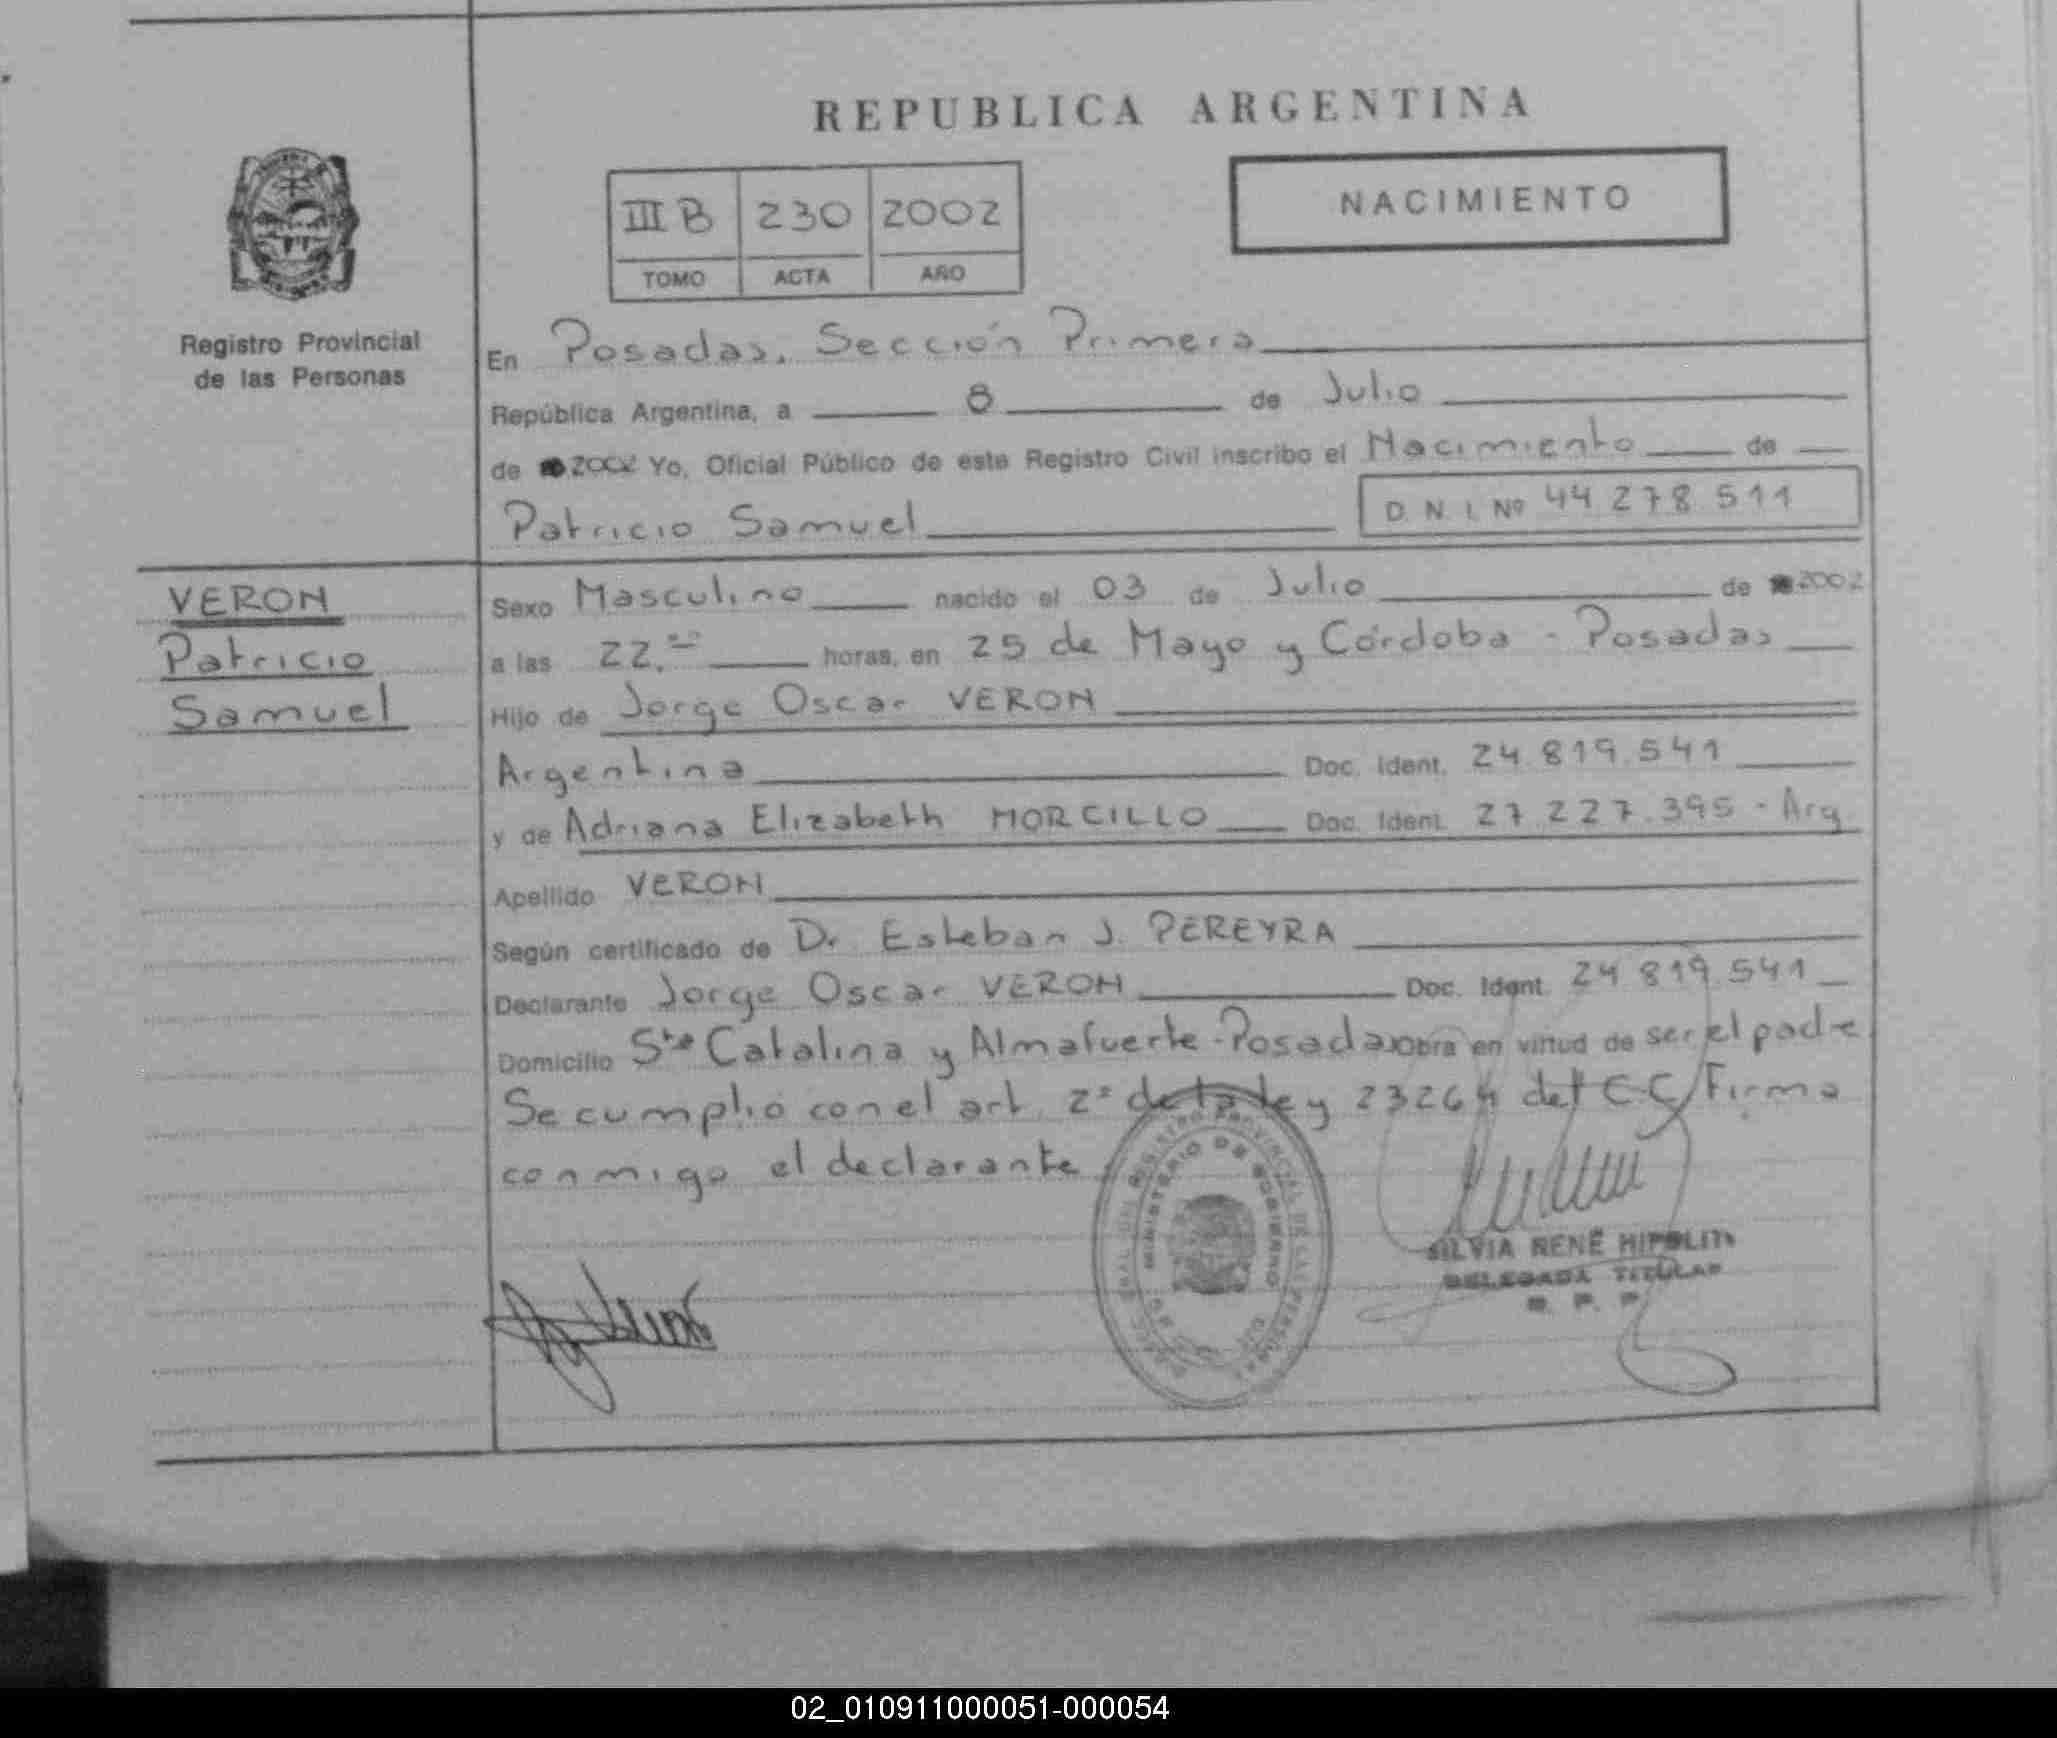 REPUBLICA ARGENTINA
III B 230 2002
TOMO ACTA AÑO
NACIMIENTO
Registro Provincial
de las Personas
En Posadas, Sección Primera
República Argentina, a 8 de Julio
de 2002 Yo, Oficial Público de este Registro Civil inscribo el Nacimiento de
Patricio Samuel D. N. I. Nº 44 278 511
VERON
Patricio
Samuel
Sexo Masculino nacido el 03 de Julio de 2002
a las 22. horas, en 25 de Mayo y Córdoba - Posadas
Hijo de Jorge Oscar VERON
Argentina Doc. Ident. 24.819.541
y de Adriana Elizabeth MORCILLO Doc. Ident. 27.227.395 - Arg
Apellido VERON
Según certificado de Dr Esteban J. PEREYRA
Declarante Jorge Oscar VERON Doc. Ident. 24 819.541
Domicilio Sta Catalina y Almafuerte - Posadas obra en virtud de ser el padre
Se cumplió con el art. 2º de la ley 23264 del C.C. Firma
conmigo el declarante
REGISTRO PROVINCIAL DE LAS PERSONAS
MINISTERIO DE GOBIERNO
SILVIA RENÉ HIPOLITO
DELEGADA TITULAR
R. P. P.
02_010911000051-000054